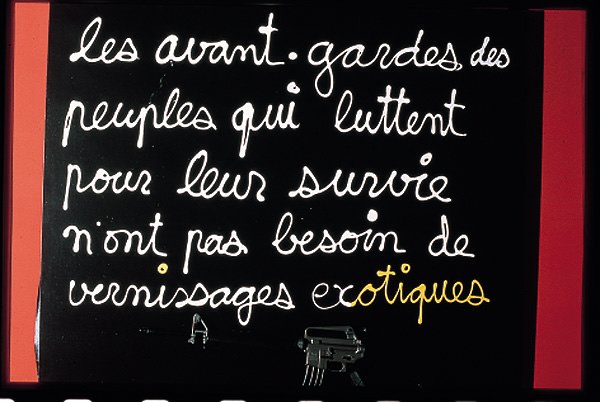 les avant-gardes des
peuples qui luttent
pour leur survie
n'ont pas besoin de
vernissages exotiques